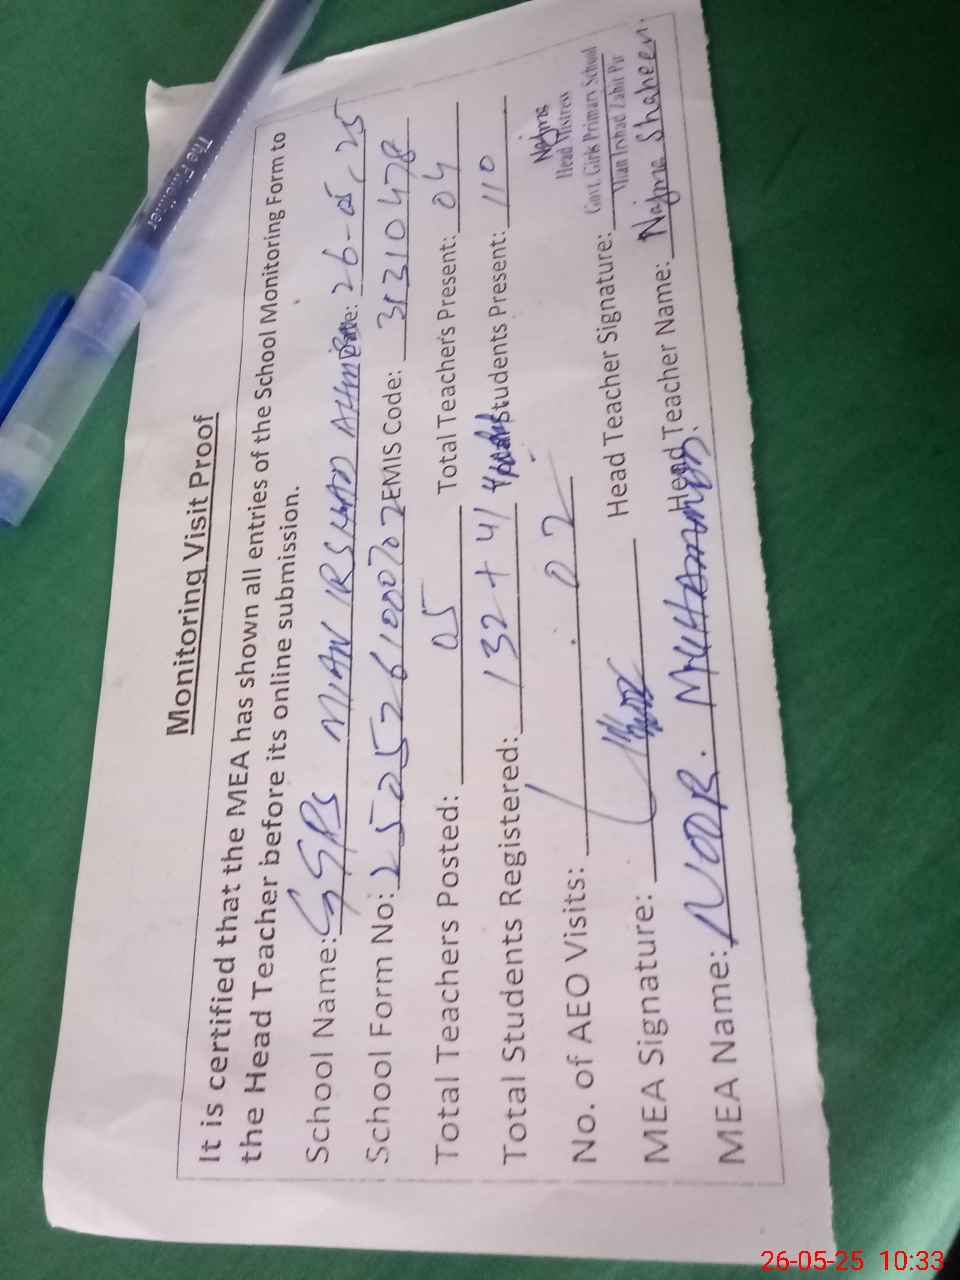 Monitoring Visit Proof
It is certified that the MEA has shown all entries of the School Monitoring Form to
the Head Teacher before its online submission.
School Name: GGPS MIAN IRSHAD AHMED Date: 26-05-25
School Form No: 2505261000702 EMIS Code: 31310478
Total Teachers Posted: 05 Total Teachers Present: 04
Total Students Registered: 132 + 41 Students Present: 110
No. of AEO Visits: 02
Najma
Head Mistress
Govt. Girls Primary School
Mian Irshad Zahir Pir
MEA Signature: Head Teacher Signature:
MEA Name: NOOR MUHAMMAD. Head Teacher Name: Najma Shaheen.
The Finliner
26-05-25 10:33